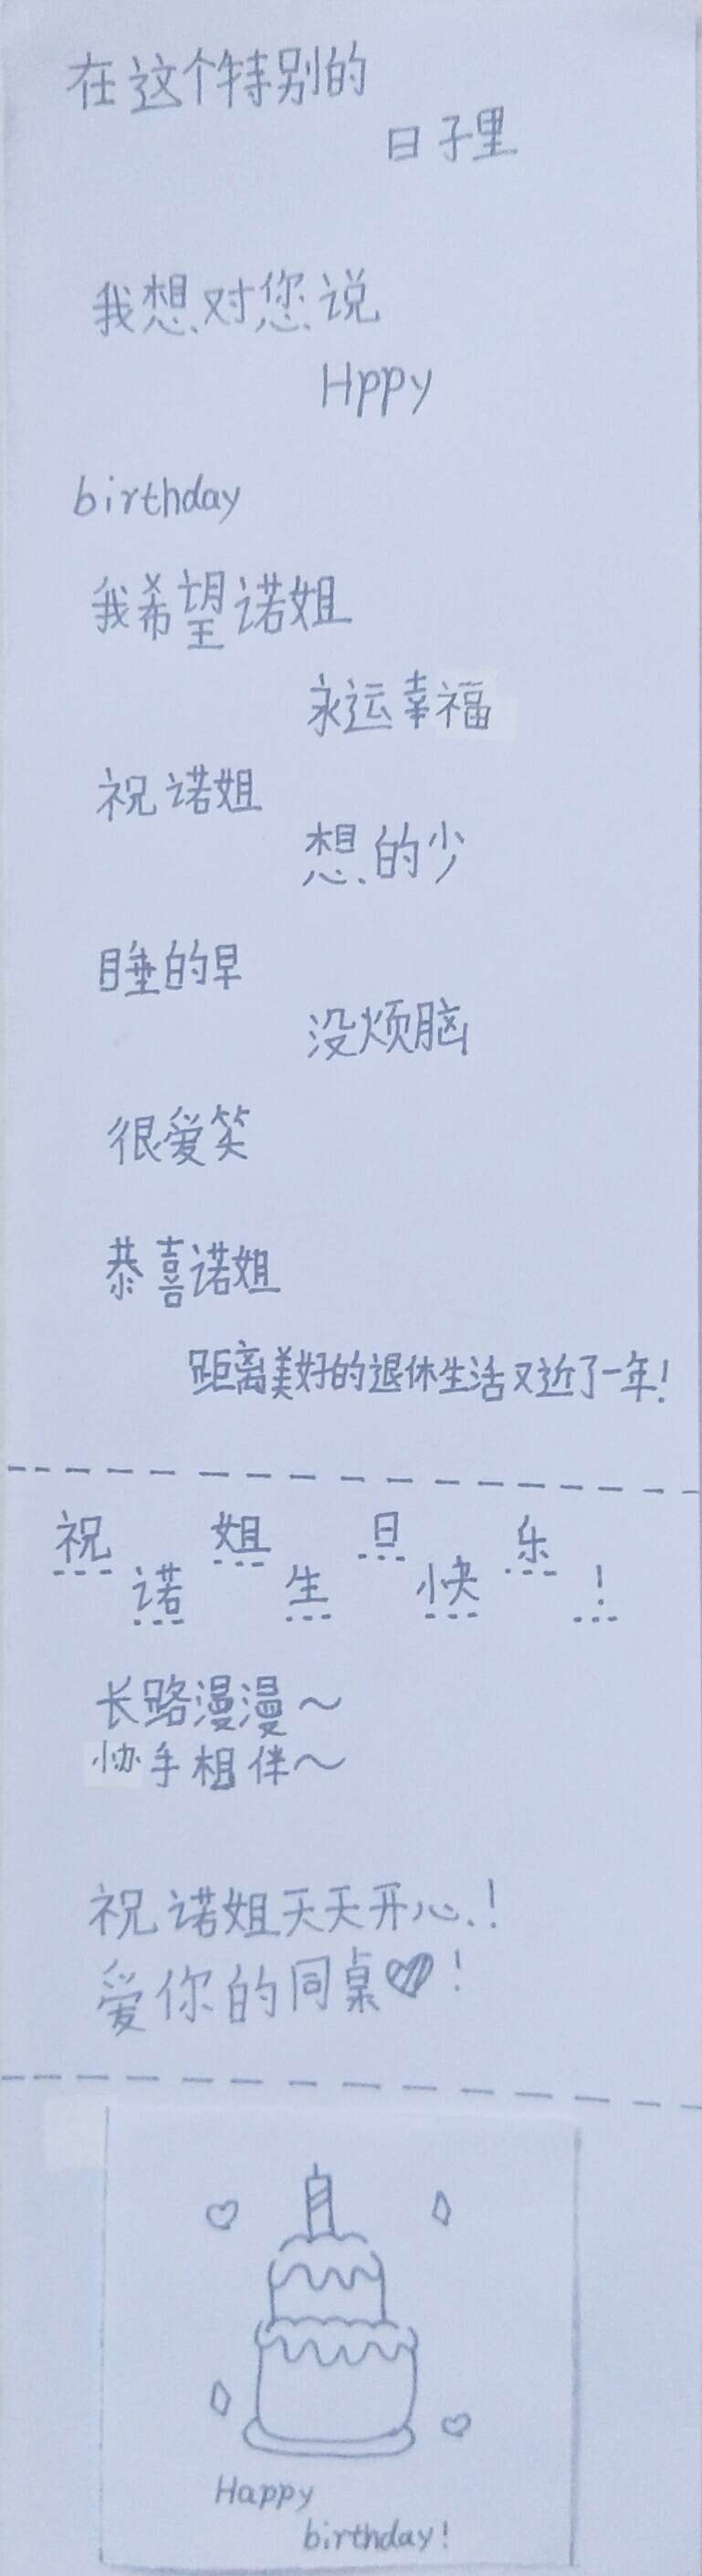 在这个特别的
日子里
我想对您说
Hppy
birthday
我希望诺姐
永运幸福
祝诺姐
想的少
睡的早
没烦脑
很爱笑
恭喜诺姐
距离美好的退休生活又近了一年!
祝诺姐生日快乐!
长路漫漫～
协手相伴～
祝诺姐天天开心!
爱你的同桌!
Happy
birthday!